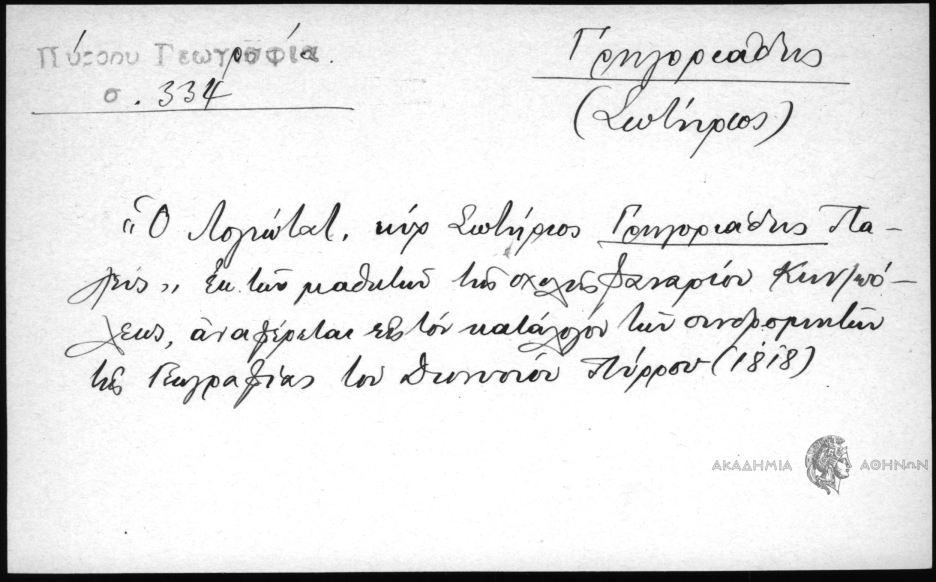 Πύρρου Γεωγραφία.
σ. 334
Γρηγοριάδης
(Σωτήριος)
"Ὁ Λογιώτατ. κὺρ Σωτήριος Γρηγοριάδης Πα-
" ἐκ τῶν μαθητῶν τῆς σχολῆς Φαναρίου Κων/πό-
λεως, ἀναφέρεται εἰς τὸν κατάλογον τῶν συνδρομητῶν
τῆς Γεωγραφίας τοῦ Διονυσίου Πύρρου (1818)
ΑΚΑΔΗΜΙΑ ΑΘΗΝΩΝ